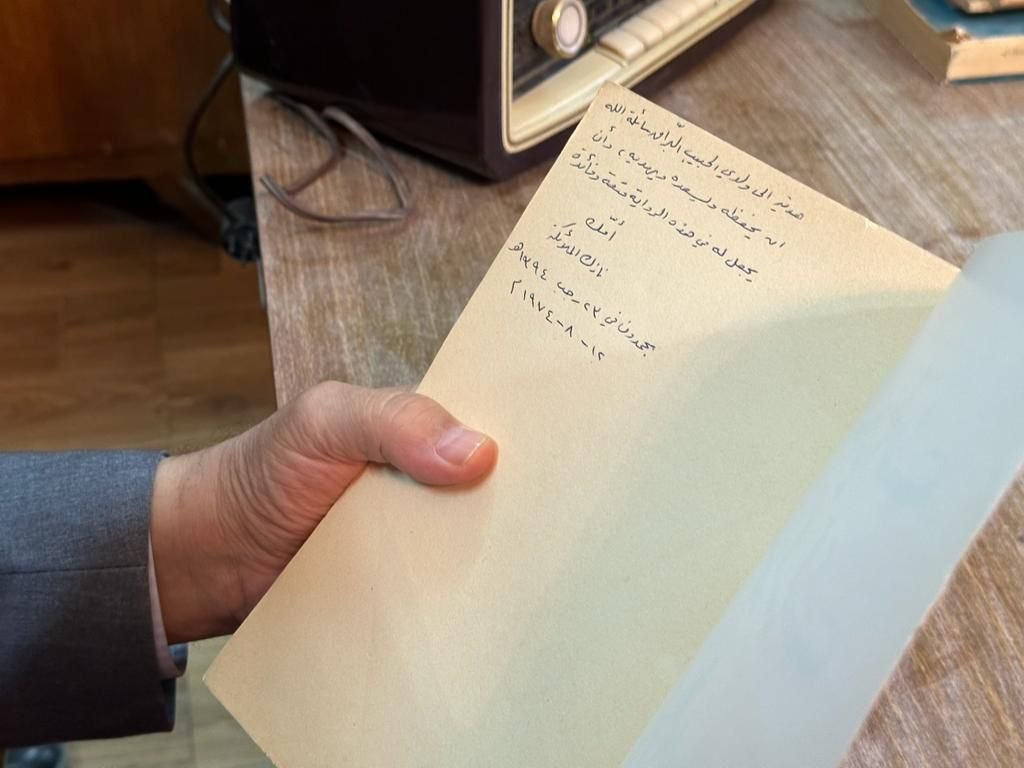 هدية الى ولدي الحبيب البرّاق سائلة الله
ان يحفظه ويسعده ويهديه، وأن
يجعل له في هذه الرواية متعة وفائدة
أمّك
نازك الملائكة
في ٢٣ رجب ١٣٩٤هـ
١٢-٨-١٩٧٤م